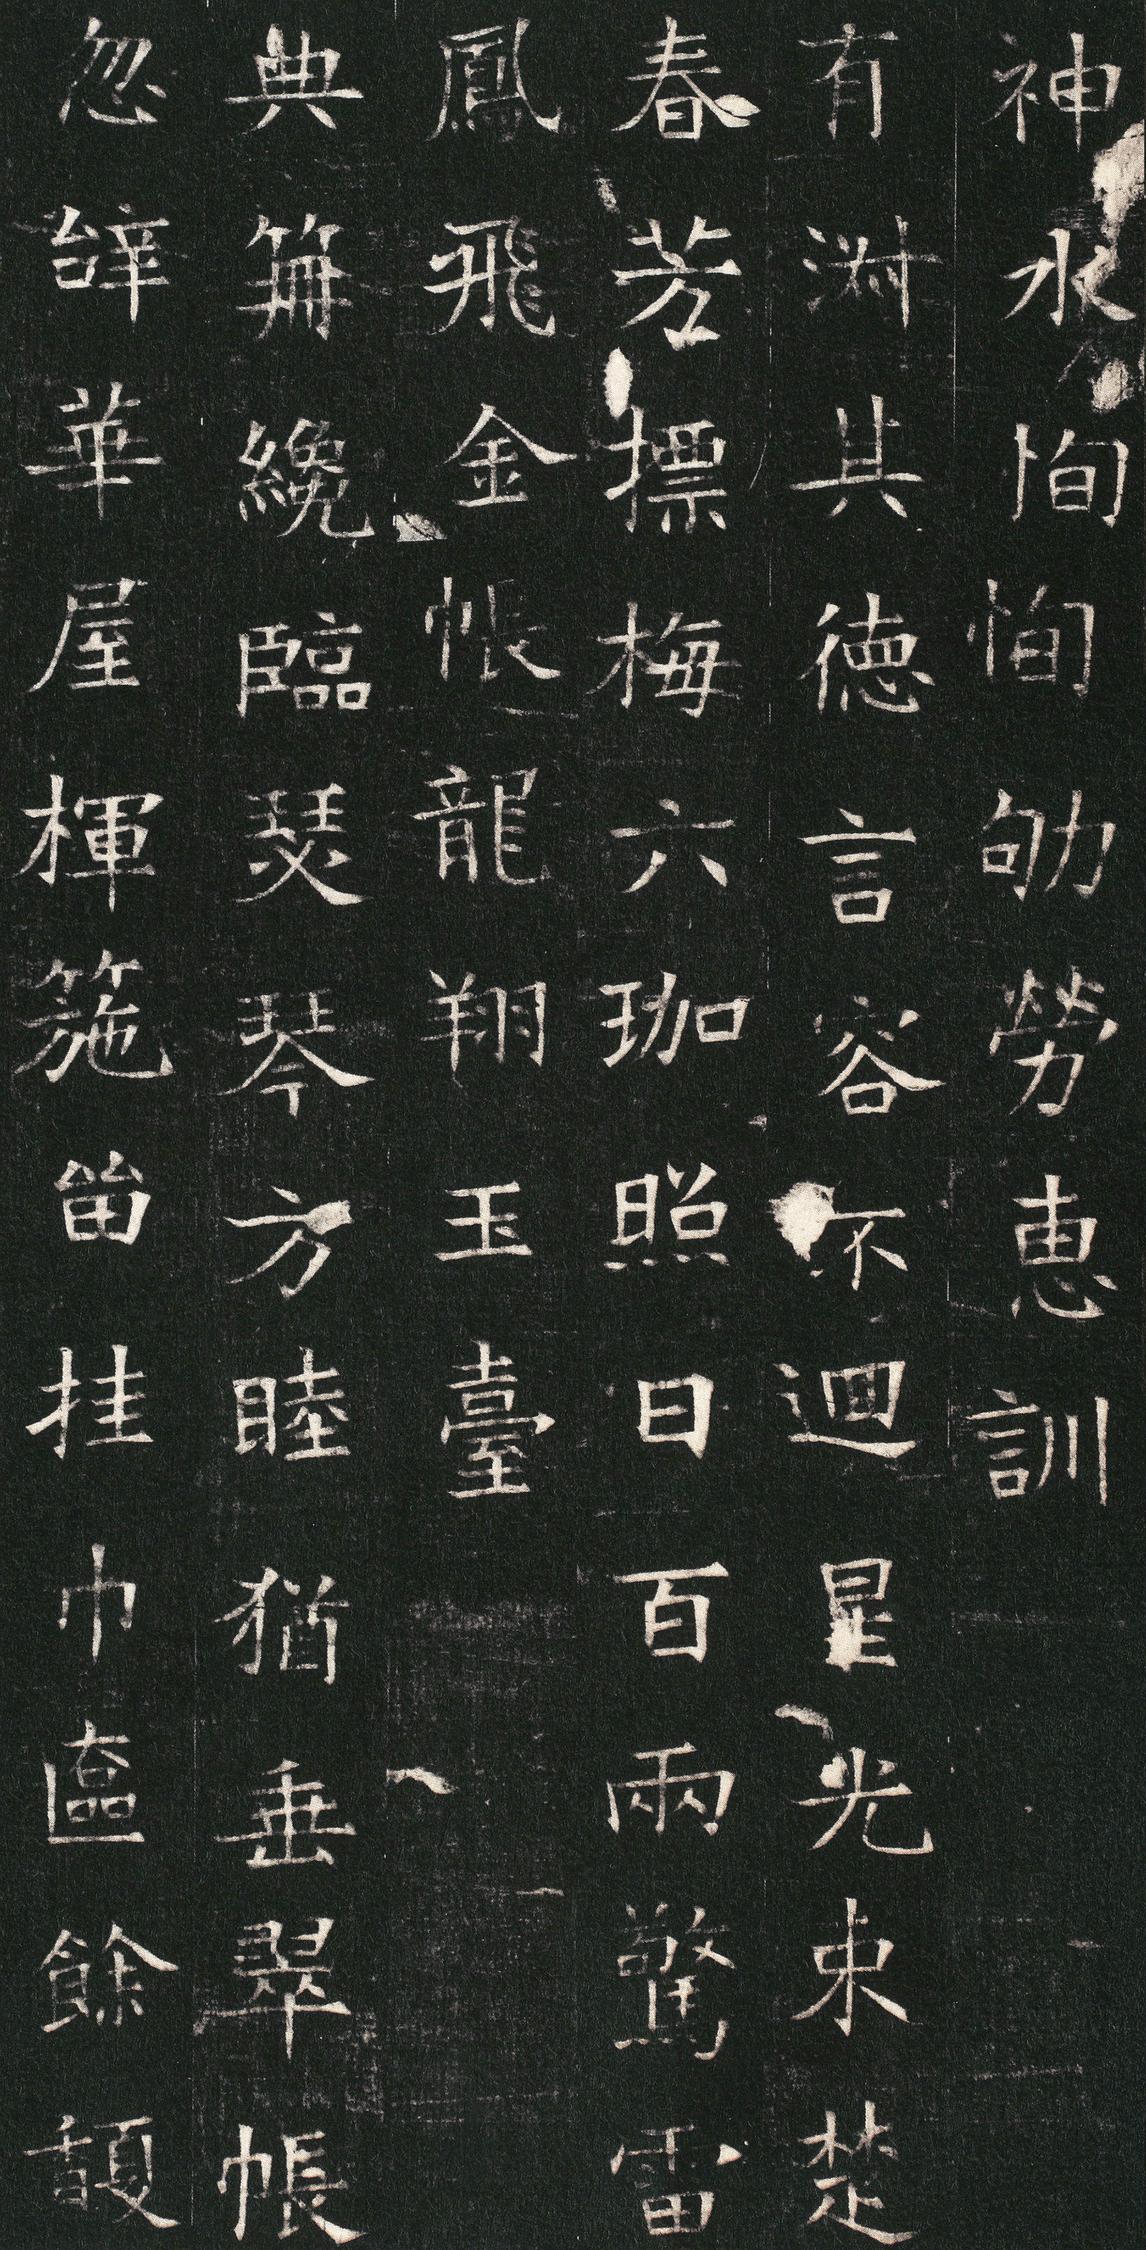 神水恂恂劬勞恵訓
有淵其徳言容不迴星光束楚
春芳摽梅六珈照日百兩驚雷
鳳飛金帳龍翔玉臺
典笧纔臨瑟琴方睦猶垂翠帳
忽辝華屋楎箷留挂巾匳餘馥